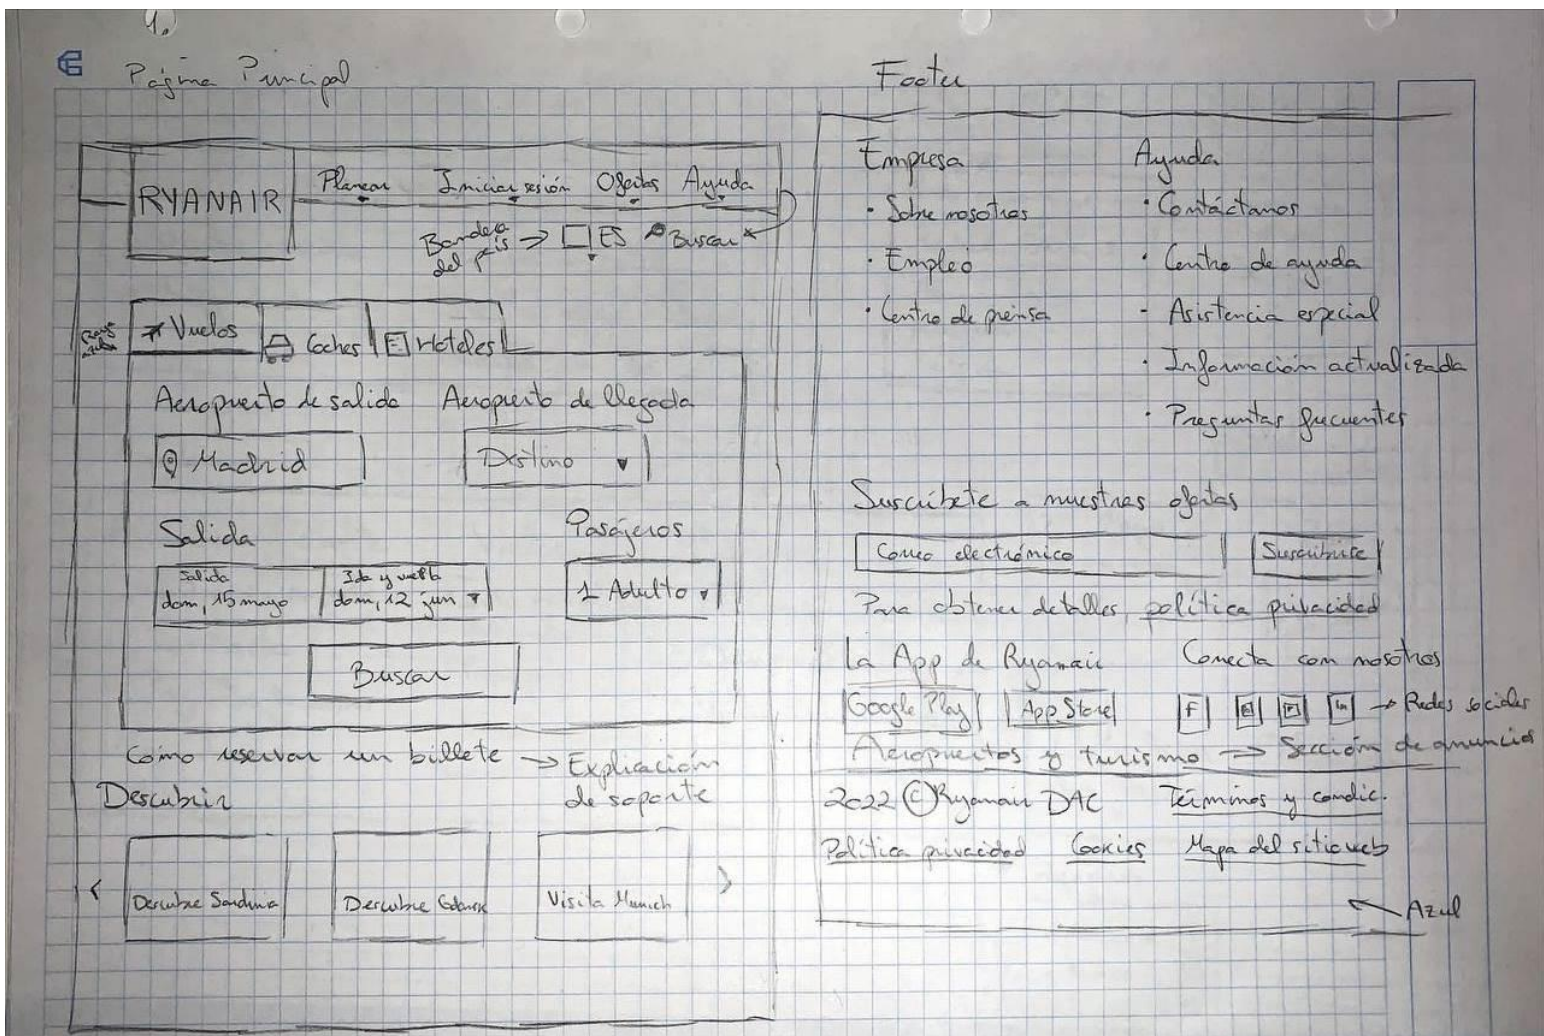 1.
Página Principal
RYANAIR
Planear Iniciar sesión Ofertas Ayuda
Bandera del país → ES Buscar
Vuelos Coches Hoteles
Aeropuerto de salida Aeropuerto de llegada
Madrid Destino
Salida Pasajeros
Salida Ida y vuelta
dom, 15 mayo dom, 12 jun 1 Adulto
Buscar
Cómo reservar un billete → Explicación
de soporte
Descubrir
< Descubre Sardinia Descubre Gdansk Visita Munich >
Footer
Empresa Ayuda
· Sobre nosotros · Contáctanos
· Empleo · Centro de ayuda
· Centro de prensa - Asistencia especial
· Información actualizada
· Preguntas frecuentes
Suscríbete a nuestras ofertas
Correo electrónico Suscribirse
Para obtener detalles, política privacidad
La App de Ryanair Conecta con nosotros
Google Play App Store F in → Redes sociales
Aeropuertos y turismo → Sección de anuncios
2022 © Ryanair DAC Términos y condic.
Política privacidad Cookies Mapa del sitio web
Azul